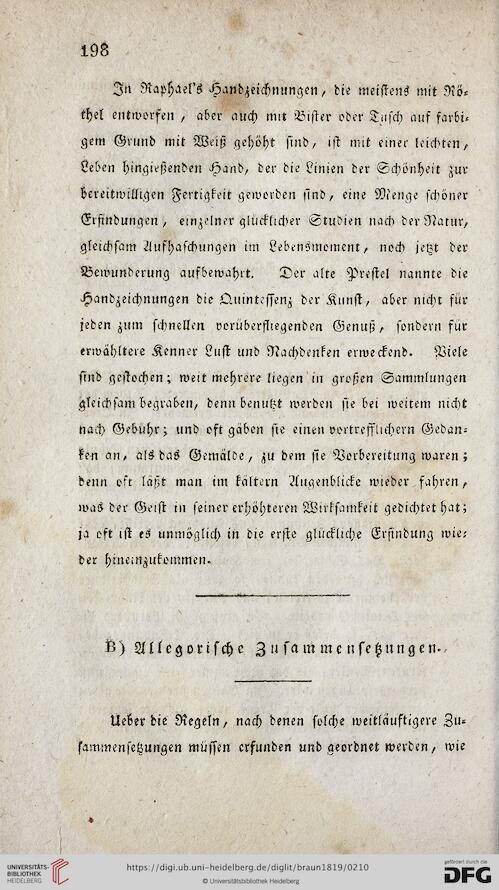 198
In Raphael's Handzeichnungen, die meistens mit Rö-
thel entworfen, aber auch mit Bister oder Tusch auf farbi-
gem Grund mit Weiß gehöht sind, ist mit einer leichten,
Leben hingießenden Hand, der die Linien der Schönheit zur
bereitwilligen Fertigkeit geworden sind, eine Menge schöner
Erfindungen, einzelner glücklicher Studien nach der Natur,
gleichsam Aufhaschungen im Lebensmoment, noch jetzt der
Bewunderung aufbewahrt. Der alte Prestel nannte die
Handzeichnungen die Quintessenz der Kunst, aber nicht für
jeden zum schnellen vorüberfliegenden Genuß, sondern für
erwähltere Kenner Lust und Nachdenken erweckend. Viele
sind gestochen; weit mehrere liegen in großen Sammlungen
gleichsam begraben, denn benutzt werden sie bei weitem nicht
nach Gebühr; und oft gäben sie einen vortrefflichern Gedan-
ken an, als das Gemälde, zu dem sie Vorbereitung waren;
denn oft läßt man im kältern Augenblicke wieder fahren,
was der Geist in seiner erhöhteren Wirksamkeit gedichtet hat;
ja oft ist es unmöglich in die erste glückliche Erfindung wie-
der hineinzukommen.
B) Allegorische Zusammensetzungen.
Ueber die Regeln, nach denen solche weitläuftigere Zu-
sammensetzungen müssen erfunden und geordnet werden, wie
UNIVERSITÄTS-
BIBLIOTHEK
HEIDELBERG
https://digi.ub.uni-heidelberg.de/diglit/braun1819/0210
© Universitätsbibliothek Heidelberg
gefördert durch die
DFG